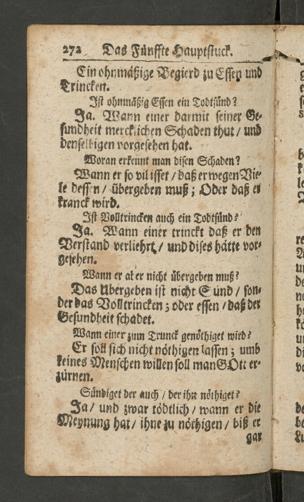 272 Das Fünffte Hauptstuck.
Ein ohnmäßige Begierd zu Essen und
Trincken.
Ist ohnmäßig Essen ein Todtsünd?
Ja. Wann einer darmit seiner Ge-
sundheit mercklichen Schaden thut / und
denselbigen vorgesehen hat.
Woran erkennt man disen Schaden?
Wann er so vil isset / daß er wegen Vie-
le dessen / übergeben muß; Oder daß er
kranck wird.
Ist Volltrincken auch ein Todtsünd?
Ja. Wann einer trinckt daß er den
Verstand verliehrt / und dises hätte vor-
gesehen.
Wann er aber nicht übergeben muß?
Das Übergeben ist nicht Sünd / son-
der das Volltrincken; oder essen / daß der
Gesundheit schadet.
Wann einer zum Trunck genöthiget wird?
Er soll sich nicht nöthigen lassen; umb
keines Menschen willen soll man GOtt er-
zürnen.
Sündiget der auch / der ihn nöthiget?
Ja / und zwar tödtlich / wann er die
Meynung hat / ihne zu nöthigen / biß er
gar